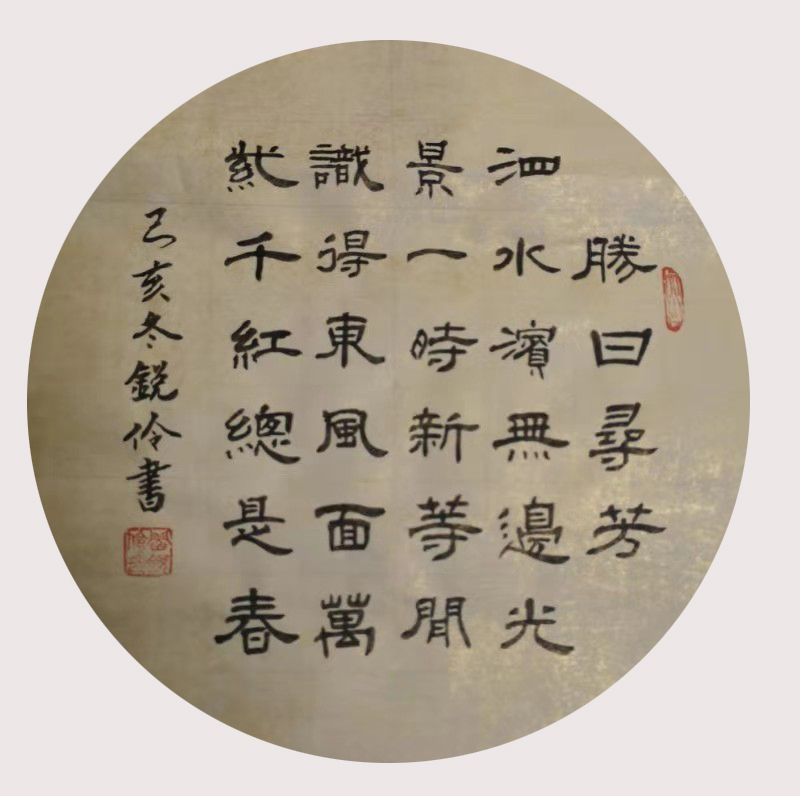 勝日尋芳
泗水濱無邊光
景一時新等閒
識得東風面萬
紫千紅總是春
己亥冬銳伶書